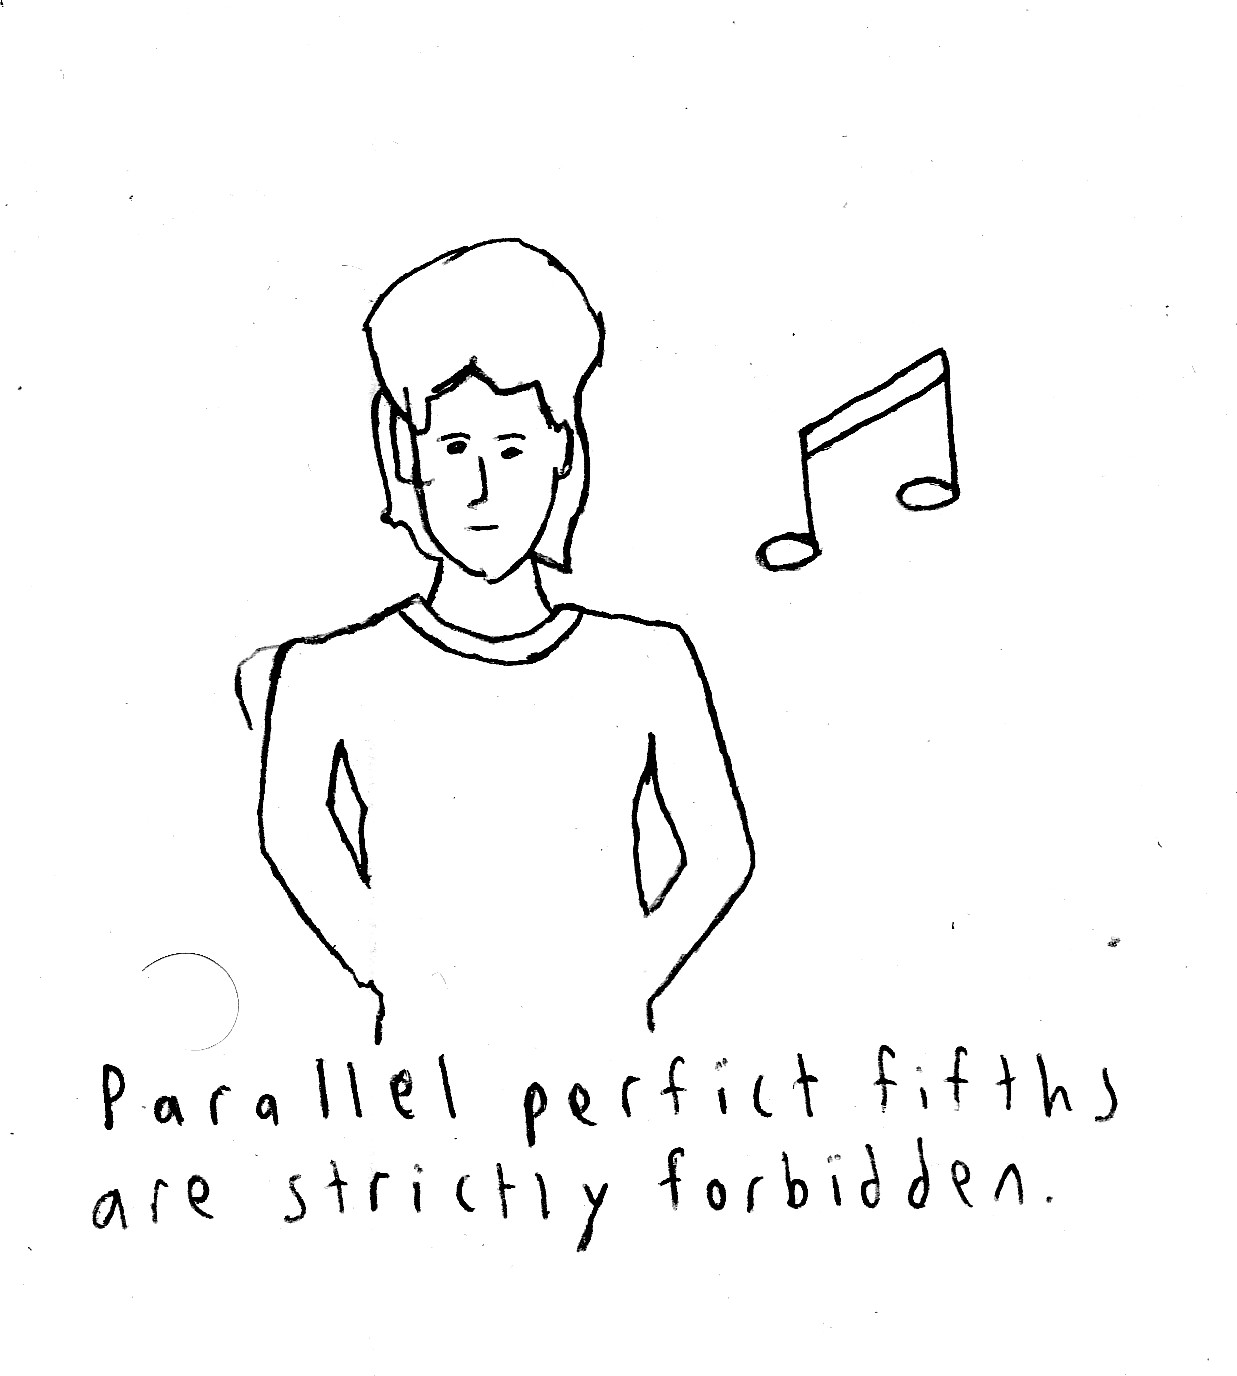 Parallel perfict fifths
are strictly forbidden.